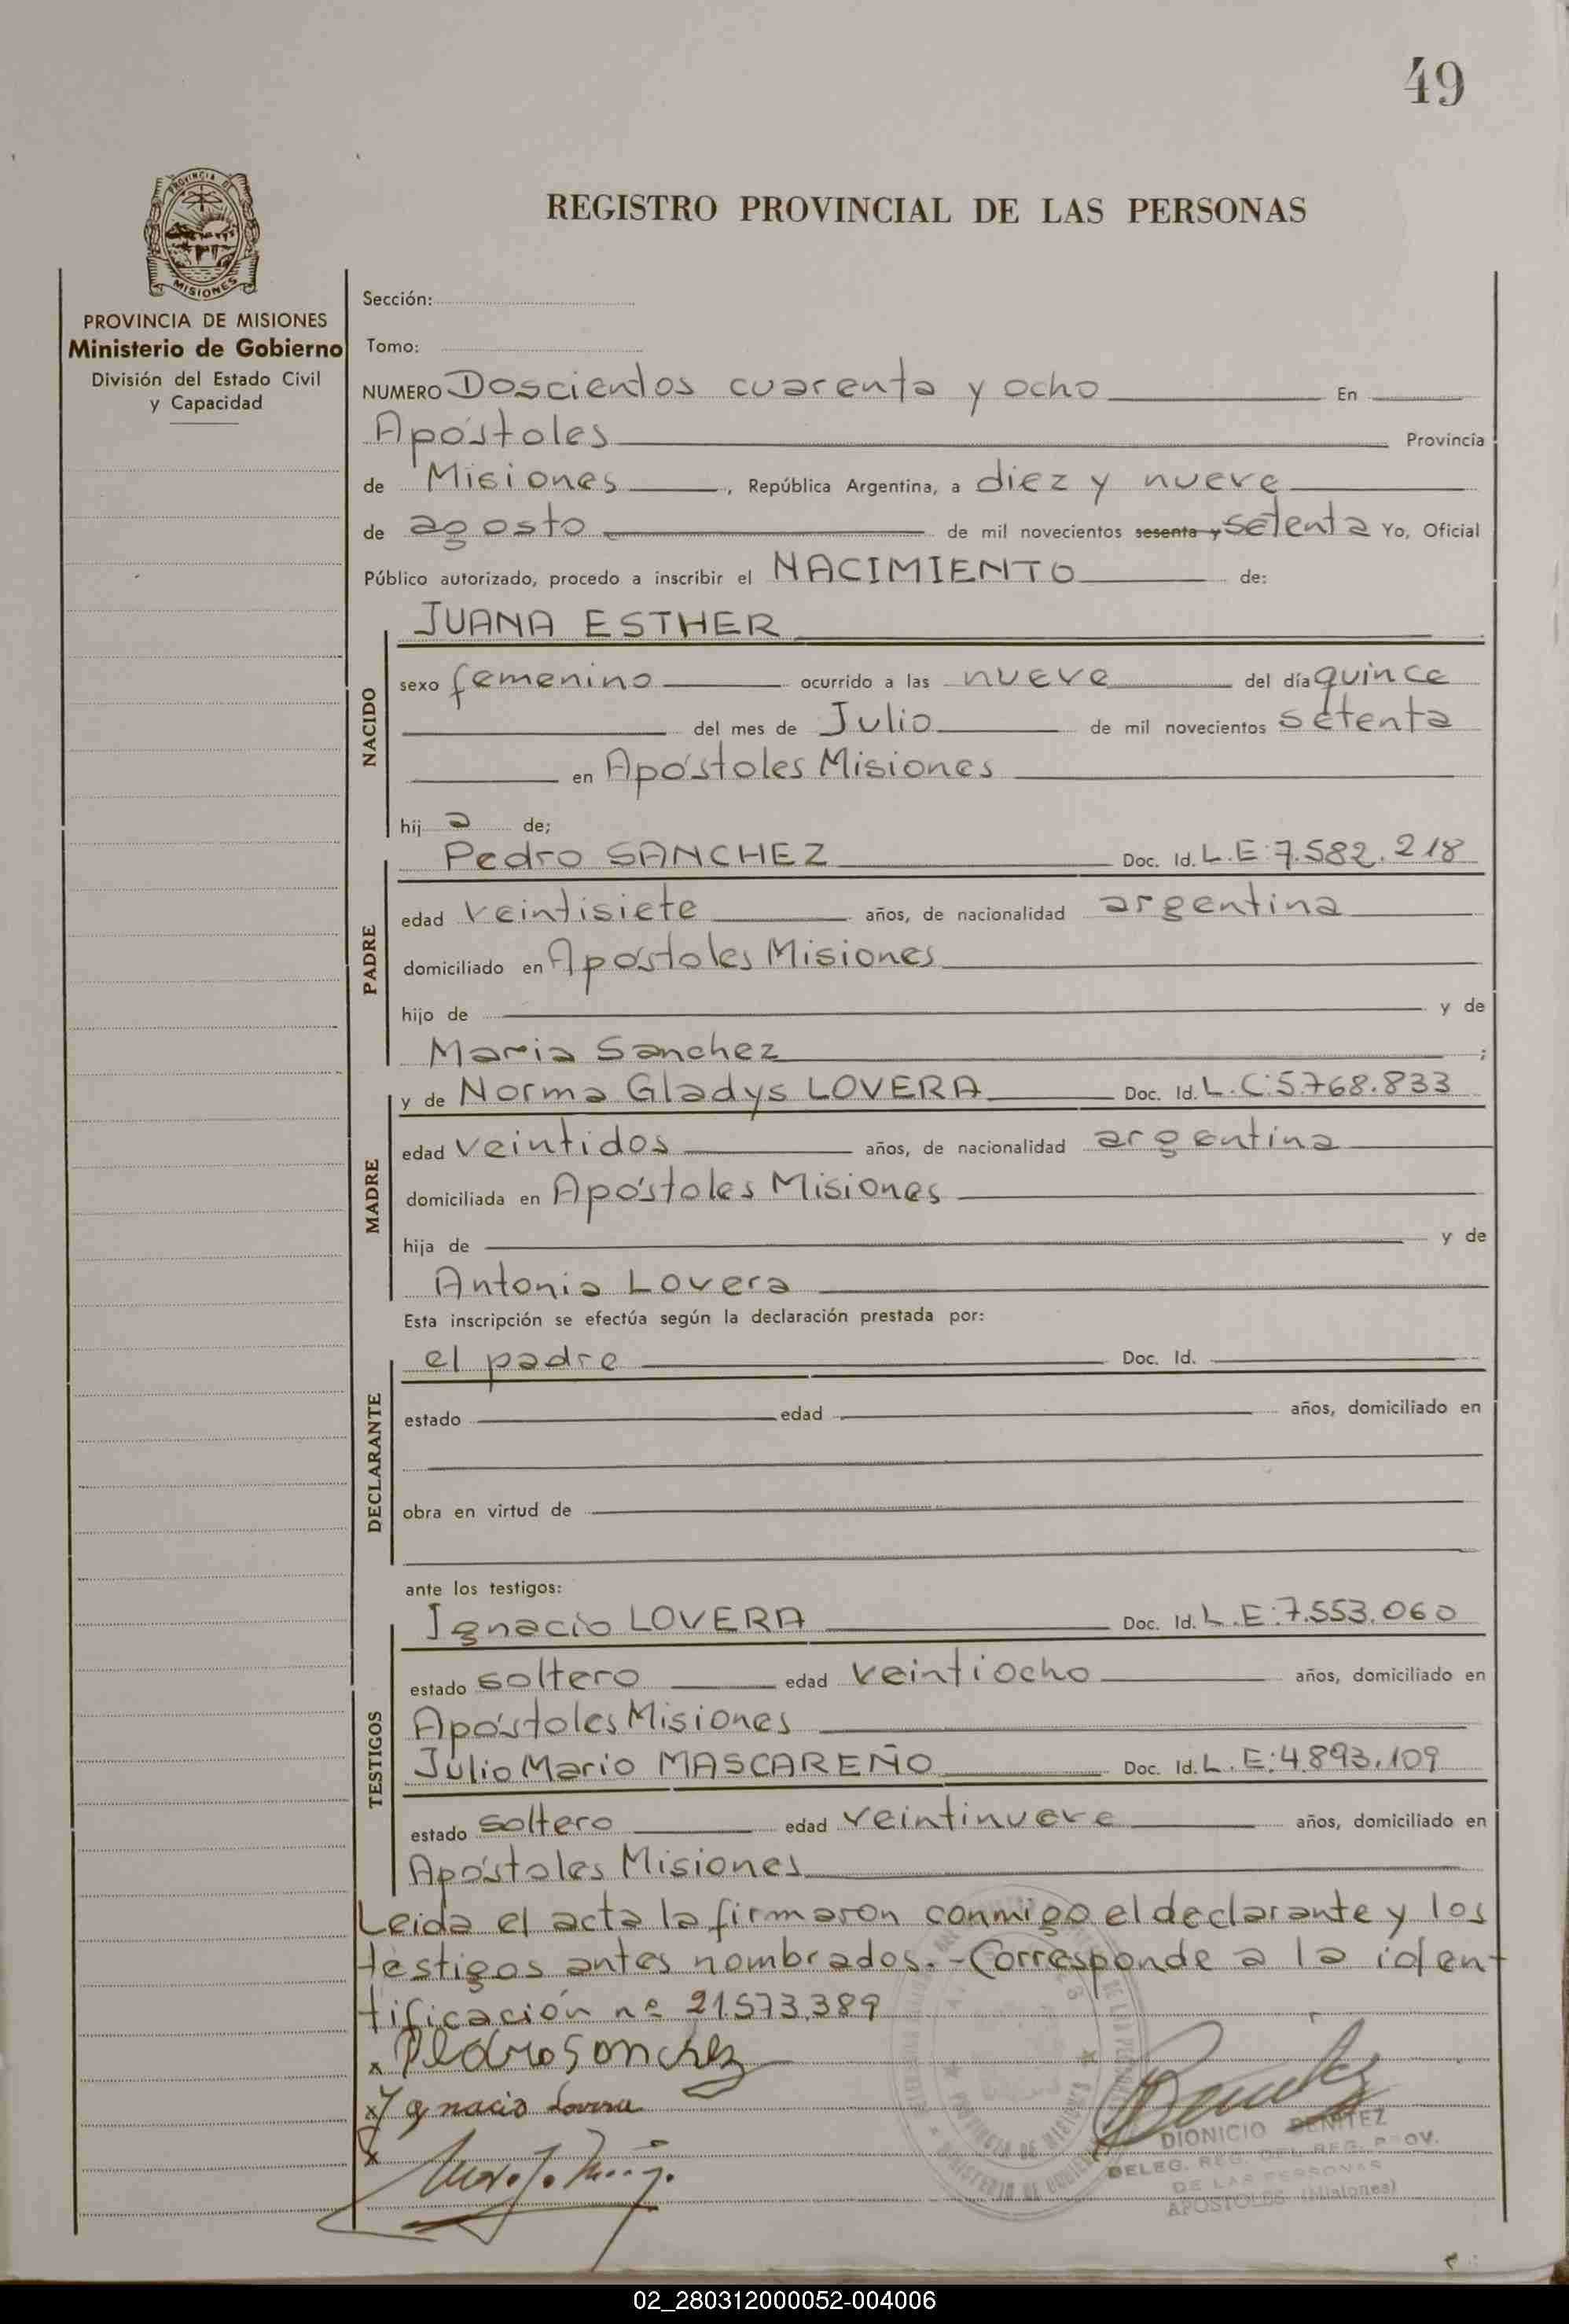 49
PROVINCIA DE
MISIONES
REGISTRO PROVINCIAL DE LAS PERSONAS
PROVINCIA DE MISIONES
Ministerio de Gobierno
División del Estado Civil
y Capacidad
Sección:
Tomo:
NUMERO Doscientos cuarenta y ocho En
Apóstoles Provincia
de Misiones, República Argentina, a diez y nueve
de agosto de mil novecientos sesenta y setenta Yo, Oficial
Público autorizado, procedo a inscribir el NACIMIENTO de:
JUANA ESTHER
NACIDO
sexo femenino ocurrido a las nueve del día quince
del mes de Julio de mil novecientos setenta
en Apóstoles Misiones
hij a de;
Pedro SANCHEZ Doc. Id. L.E:7.582.218
PADRE
edad veintisiete años, de nacionalidad argentina
domiciliado en Apóstoles Misiones
hijo de y de
Maria Sanchez ;
y de Norma Gladys LOVERA Doc. Id. L.C:5.768.833
MADRE
edad veintidos años, de nacionalidad argentina
domiciliada en Apóstoles Misiones
hija de y de
Antonia Lovera
Esta inscripción se efectúa según la declaración prestada por:
el padre Doc. Id.
DECLARANTE
estado edad años, domiciliado en
obra en virtud de
ante los testigos:
Ignacio LOVERA Doc. Id. L.E:7.553.060
TESTIGOS
estado soltero edad veintiocho años, domiciliado en
Apóstoles Misiones
Julio Mario MASCAREÑO Doc. Id. L.E:4.893.109
estado soltero edad veintinueve años, domiciliado en
Apóstoles Misiones
Leida el acta la firmaron conmigo el declarante y los
testigos antes nombrados.-Corresponde a la iden
tificación nº 21.573.389
x Pedro Sanchez
x Ygnacio Lovera
x
PROVINCIA DE MISIONES
MINISTERIO DE GOBIERNO
DIONICIO BENITEZ
DELEG. REG. DEL REG. PROV.
DE LAS PERSONAS
APOSTOLES (Misiones)
02_280312000052-004006